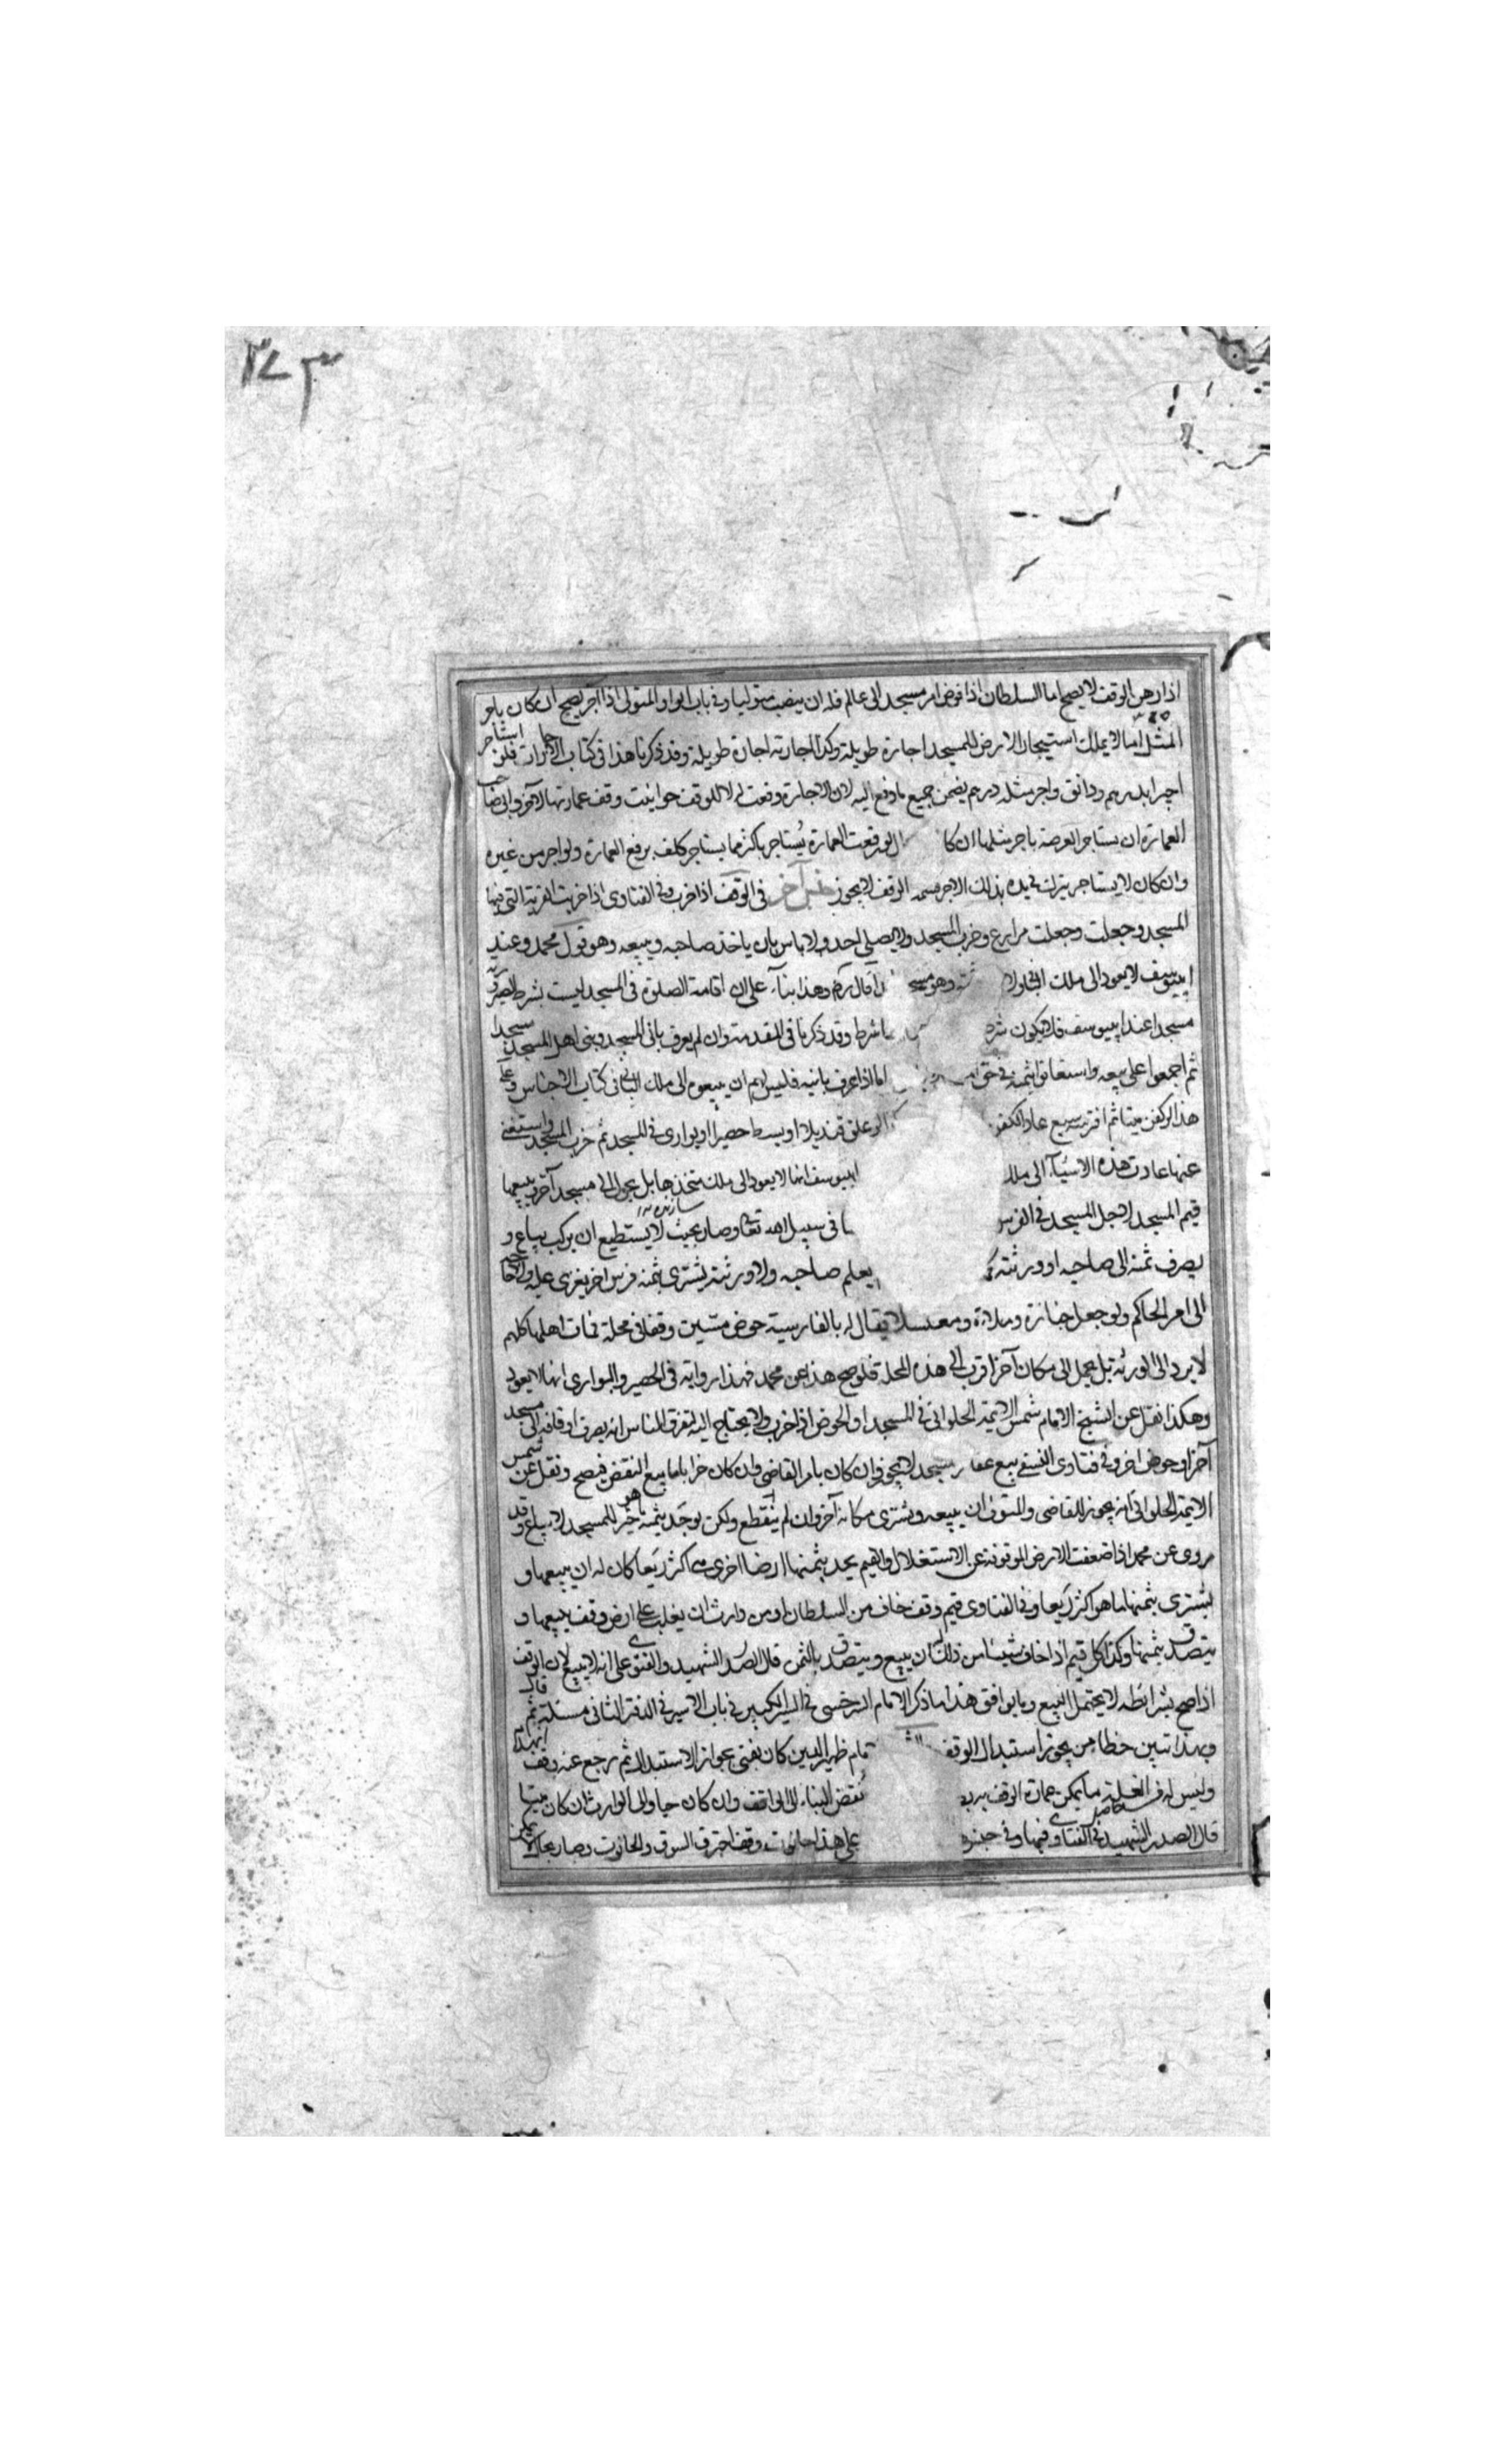 ٣٧٣
اذا رهن الوقف لا يصح اما السلطان اذا فوض امر مسجد الى عالم فله ان ينصب متوليا وفى باب الواو المتولى اذا آجر يصح ان كان باجر
المثل اما لا يملك استيجار الارض للمسجد اجارة طويلة وكذا اجارته اجارة طويلة وقد ذكرنا هذا فى كتاب الاجارات فلو استاجر
اجيرا بدرهم ودانق واجر مثله درهم يضمن جميع ما دفع اليه لان الاجارة وقعت له لا للوقف حوانيت وقف عمارتها لآخر وابى صاحب
العمارة ان يستاجر العرصة باجر مثلها ان كا لو رفعت العمارة يستاجر باكثر مما يستاجر كلف برفع العمارة ولو اجر من غيره
وان كان لا يستاجر يترك فى يده بذلك الاجر الوقف لا يجوز جنس آخر فى الوقف اذا خرب وفى الفتاوى اذا خربت القرية التى فيها
المسجد وجعلت وجعلت مزارع وخرب المسجد ولا يصلى احد ولا باس بان ياخذ صاحبه ويبيعه وهو قول محمد وعند
ابى يوسف لا يعود الى ملك البانى ولا وهو مسجد قال رم وهذا بناء على ان اقامة الصلوة فى المسجد ليست بشرط لصيرورته
مسجدا عند ابى يوسف فلا يكون شر شرط وقد ذكرنا فى المقدمة وان لم يعرف بانى المسجد وبنى اهل المسجد مسجدا
ثم اجمعوا على بيعه واستعانوا بثمنه فى حق اما اذا عرف بانيه فليس لهم ان يبيعوه الى ملك البانى فى كتاب الاجناس وعلى
هذا لو كفن ميتا ثم افترسه سبع عاد الكفن لو علق قنديلا او بسط حصيرا او بوارى فى المسجد ثم خرب المسجد واستغنى
عنها عادت هذه الاشياء الى ملك ابى يوسف انها لا يعود الى ملك متخذها بل يحول الى مسجد آخر او يبيعها
قيم المسجد لاجل المسجد فى الفرس فى سبيل الله تعالى وصار بحيث لا يستطيع ان يركب يباع و
يصرف ثمنه الى صاحبه او ورثته يعلم صاحبه ولا ورثته يشترى بثمنه فرس اخر يغزى عليه ولا حاجة
الى امر الحاكم ولو جعل جنازة وملاءة ومغتسلا يقال له بالفارسية حوض مسين وقفا فى محلة فمات اهلها كلهم
لا يرد الى الورثة بل يحمل الى مكان آخر اقرب الى هذه المحلة فلو صح هذا عن محمد فهذا رواية فى الحصير والبوارى انها لا يعود
وهكذا نقل عن الشيخ الامام شمس الايمة الحلوانى فى المسجد او الحوض اذا خرب ولا يحتاج اليه لتفرق الناس انه يصرف اوقافه الى مسجد
آخر او حوض اخر وفى فتاوى النسفى بيع عقار مسجد لا يجوز وان كان بامر القاضى وان كان خرابا اما بيع النقض فيصح ونقل عن شمس
الايمة الحلوانى انه يجوز للقاضى والمتولى ان يبيعه ويشترى مكانه آخر وان لم ينقطع ولكن يوجد بثمنه ما هو خير للمسجد لا يباع وقد
روى عن محمد اذا ضعفت الارض الموقوفة عن الاستغلال والقيم يجد بثمنها ارضا اخرى هى اكثر ريعا كان له ان يبيعها و
يشترى بثمنها ما هو اكثر ريعا وفى الفتاوى قيم وقف خاف من السلطان او من وارث ان يغلب على ارض وقف يبيعها و
يتصدق بثمنها وكذا كل قيم اذا خاف شيئا من ذلك ان يبيع ويتصدق بالثمن قال الصدر الشهيد والفتوى على انه لا يبيع لان الوقف
اذا صح بشرائطه لا يحتمل البيع وما يوافق هذا ما ذكر الامام السرخسى فى السير الكبير فى باب الاسير فى الدفتر الثانى مسئلة ثم قال
وبهذا تبين خطا من يجوز استبدال الوقف امام ظهير الدين كان يفتى بجواز الاستبدال ثم رجع عنه وقف انهدم
وليس له من الغلة ما يمكن عمارة الوقف به نقض البناء الى الواقف وان كان حيا والى الوارث ان كان ميتا
قال الصدر الشهيد فى الفتاوى فيها وفى جنس على هذا حانوت وقف احترق السوق والحانوت وصار بحال لا يمكن